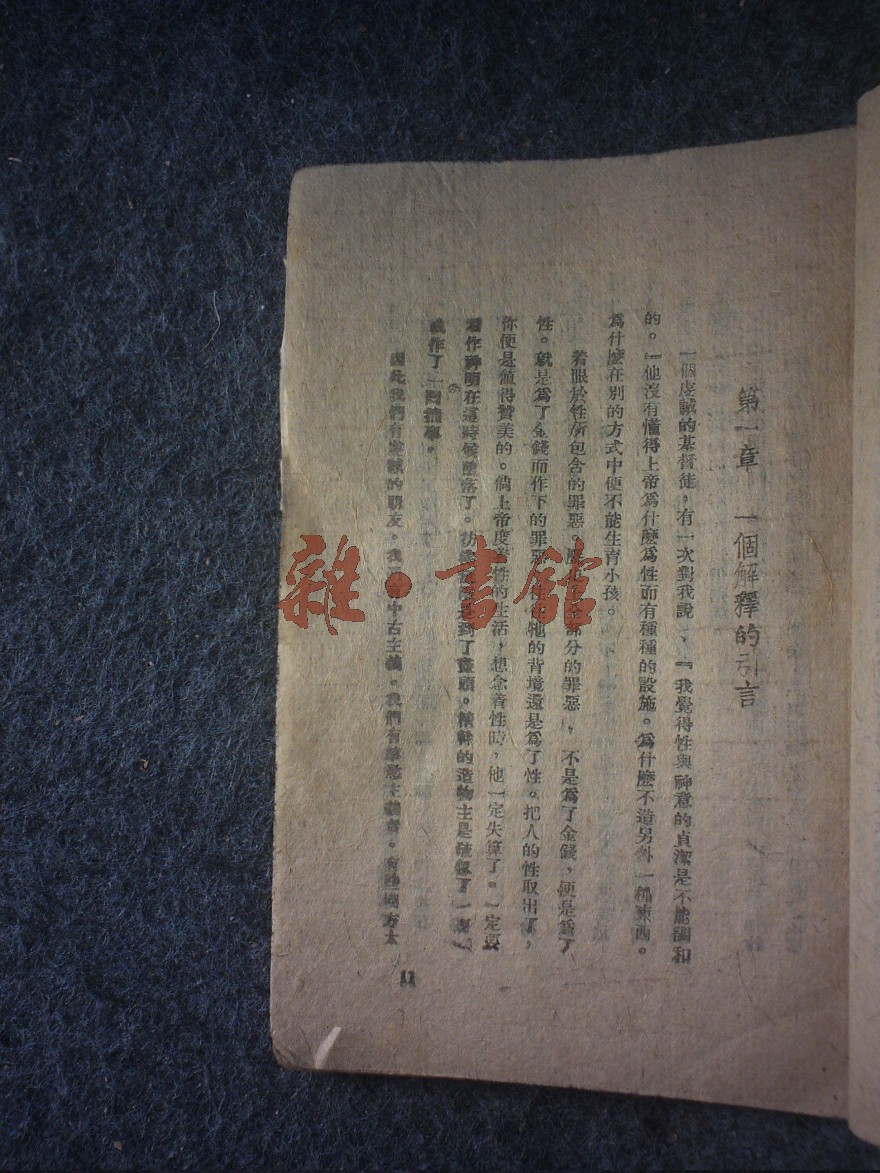 第一章　一個解釋的引言
一個虔誠的基督徒。有一次對我說，『我覺得性與神意的貞潔是不能調和
的。一他沒有懂得上帝爲什麼爲性而有種種的設施。爲什麼不造另外一種東西。
爲什麼在別的方式中便不能生育小孩。
着眼於性所包含的罪惡。部分的罪惡，不是爲了金錢，便是爲了
性。就是爲了金錢而作下的罪惡，牠的背境還是爲了性。把人的性取出了，
你便是值得贊美的。倘上帝度着性的生活，想念着性時，他一定失算了。一定要
看作神明在這時候墮落了。到了盡頭。的造物主是
作了一
因此我們有虔誠的朋友。我們有中古主義。我們有
11
雜·書館